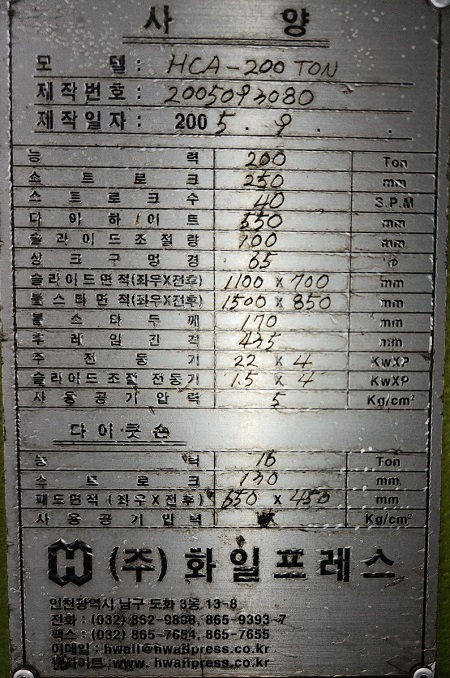 사 양
모 델 : HCA-200 TON
제작번호 : 2005093080
제작일자 : 2005. 9 .
능 력 200 Ton
스트로크 250 mm
스트로크수 40 S.P.M
다이하이트 550 mm
슬라이드조절량 100 mm
상크구멍경 65 Φ
슬라이드면적(좌우X전후) 1100 x 700 mm
볼스타면적(좌우X전후) 1500 x 850 mm
볼스타두께 170 mm
후레임긴각 mm
주전동기 22 x 4 KwXP
슬라이드조절전동기 1.5 x 4 KwXP
사용공기압력 5 Kg/cm²
다이쿳숀
능 력 16 Ton
스트로크 130 mm
패드면적(좌우X전후) 650 x 450 mm
사용공기압력 Kg/cm²
(주)화일프레스
인천광역시 남구 도화 3동 13-8
전화 : (032) 862-9838, 865-9393~7
팩스 : (032) 865-7654, 865-7655
이메일 :
웹사이트 :